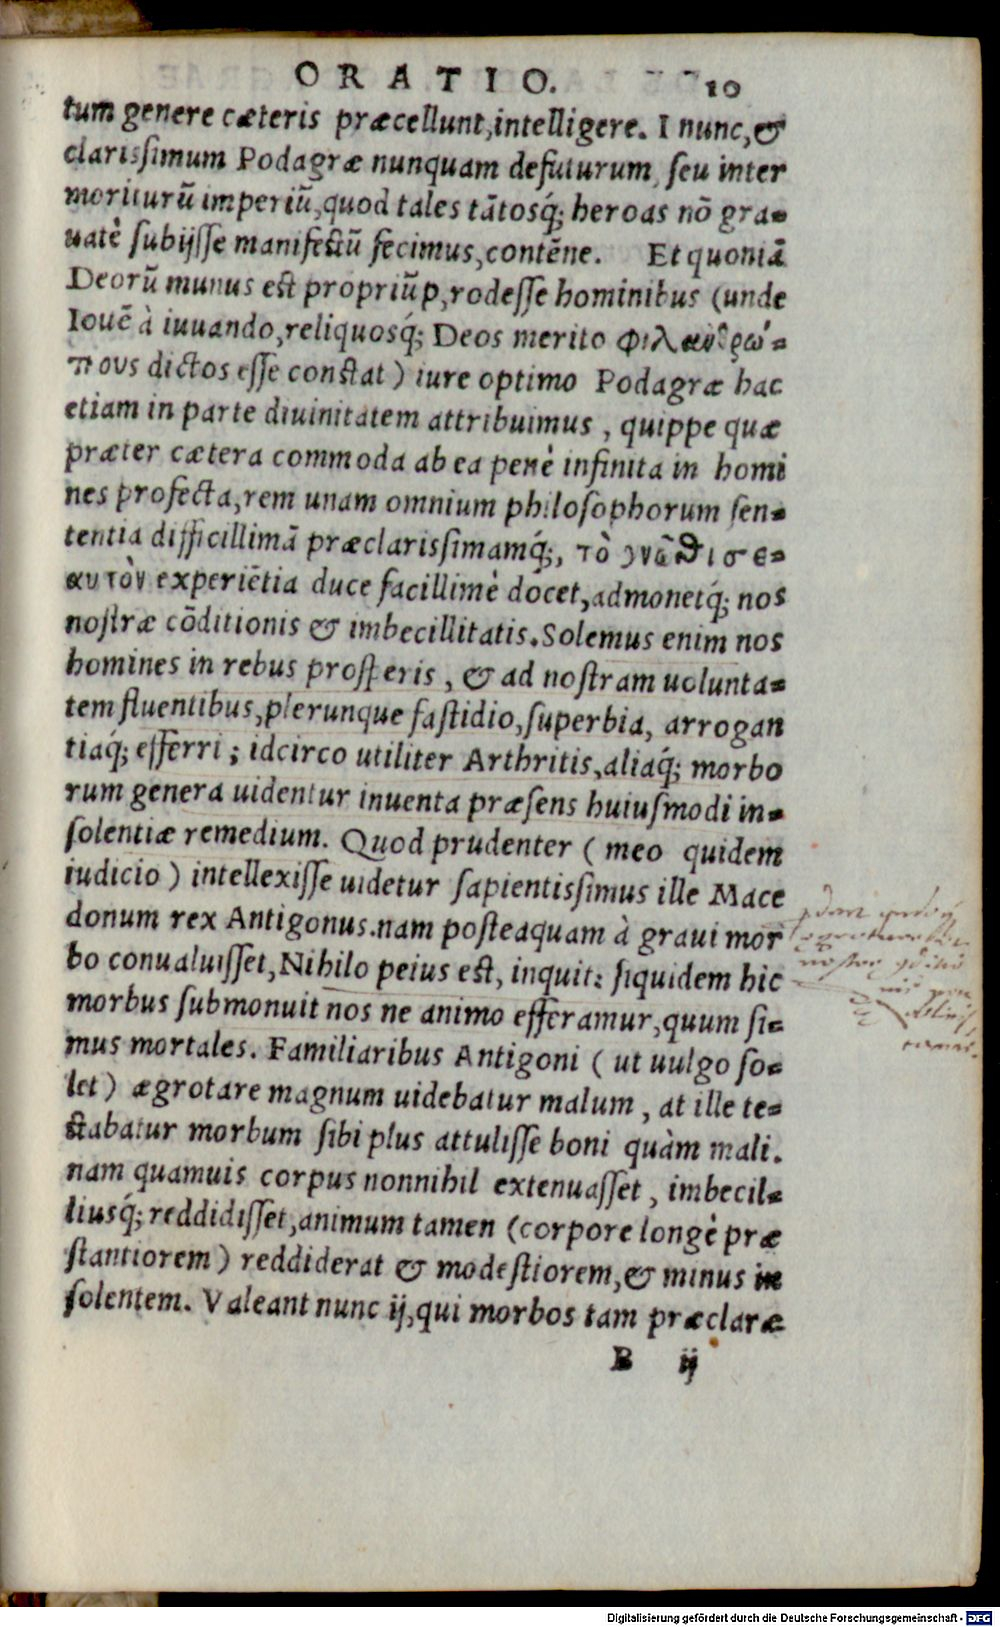 ORATIO. 10
tum genere cæteris præcellunt, intelligere. I nunc, &
clarissimum Podagræ nunquam defuturum, seu inter
moriturũ imperiũ, quod tales tãtosq́; heroas nõ gra-
uatè subijsse manifestũ fecimus, contẽne. Et quoniã
Deorũ munus est propriũ p,rodesse hominibus (unde
Iouẽ à iuuando, reliquosq́; Deos merito φιλανθρώ-
πους dictos esse constat) iure optimo Podagræ hac
etiam in parte diuinitatem attribuimus, quippe quæ
præter cætera commoda ab ea penè infinita in homi
nes profecta, rem unam omnium philosophorum sen-
tentia difficillimã præclarissimamq́;, τὸ γνῶθι σε-
αυτὸν experiẽtia duce facillimè docet, admonetq́; nos
nostræ cõditionis & imbecillitatis. Solemus enim nos
homines in rebus prosperis, & ad nostram uolunta-
tem fluentibus, plerunque fastidio, superbia, arrogan
tiaq́; efferri; idcirco utiliter Arthritis, aliaq́; morbo
rum genera uidentur inuenta præsens huiusmodi in-
solentiæ remedium. Quod prudenter (meo quidem
iudicio) intellexisse uidetur sapientissimus ille Mace
donum rex Antigonus. nam posteaquam à graui mor
bo conualuisset, Nihilo peius est, inquit: siquidem hic
morbus submonuit nos ne animo efferamur, quum si-
mus mortales. Familiaribus Antigoni (ut uulgo so-
let) ægrotare magnum uidebatur malum, at ille te-
stabatur morbum sibi plus attulisse boni quàm mali.
nam quamuis corpus nonnihil extenuasset, imbecil-
liusq́; reddidisset, animum tamen (corpore longè præ
stantiorem) reddiderat & modestiorem, & minus in
solentem. Valeant nunc ij, qui morbos tam præclaræ
B ij
Digitalisierung gefördert durch die Deutsche Forschungsgemeinschaft - DFG